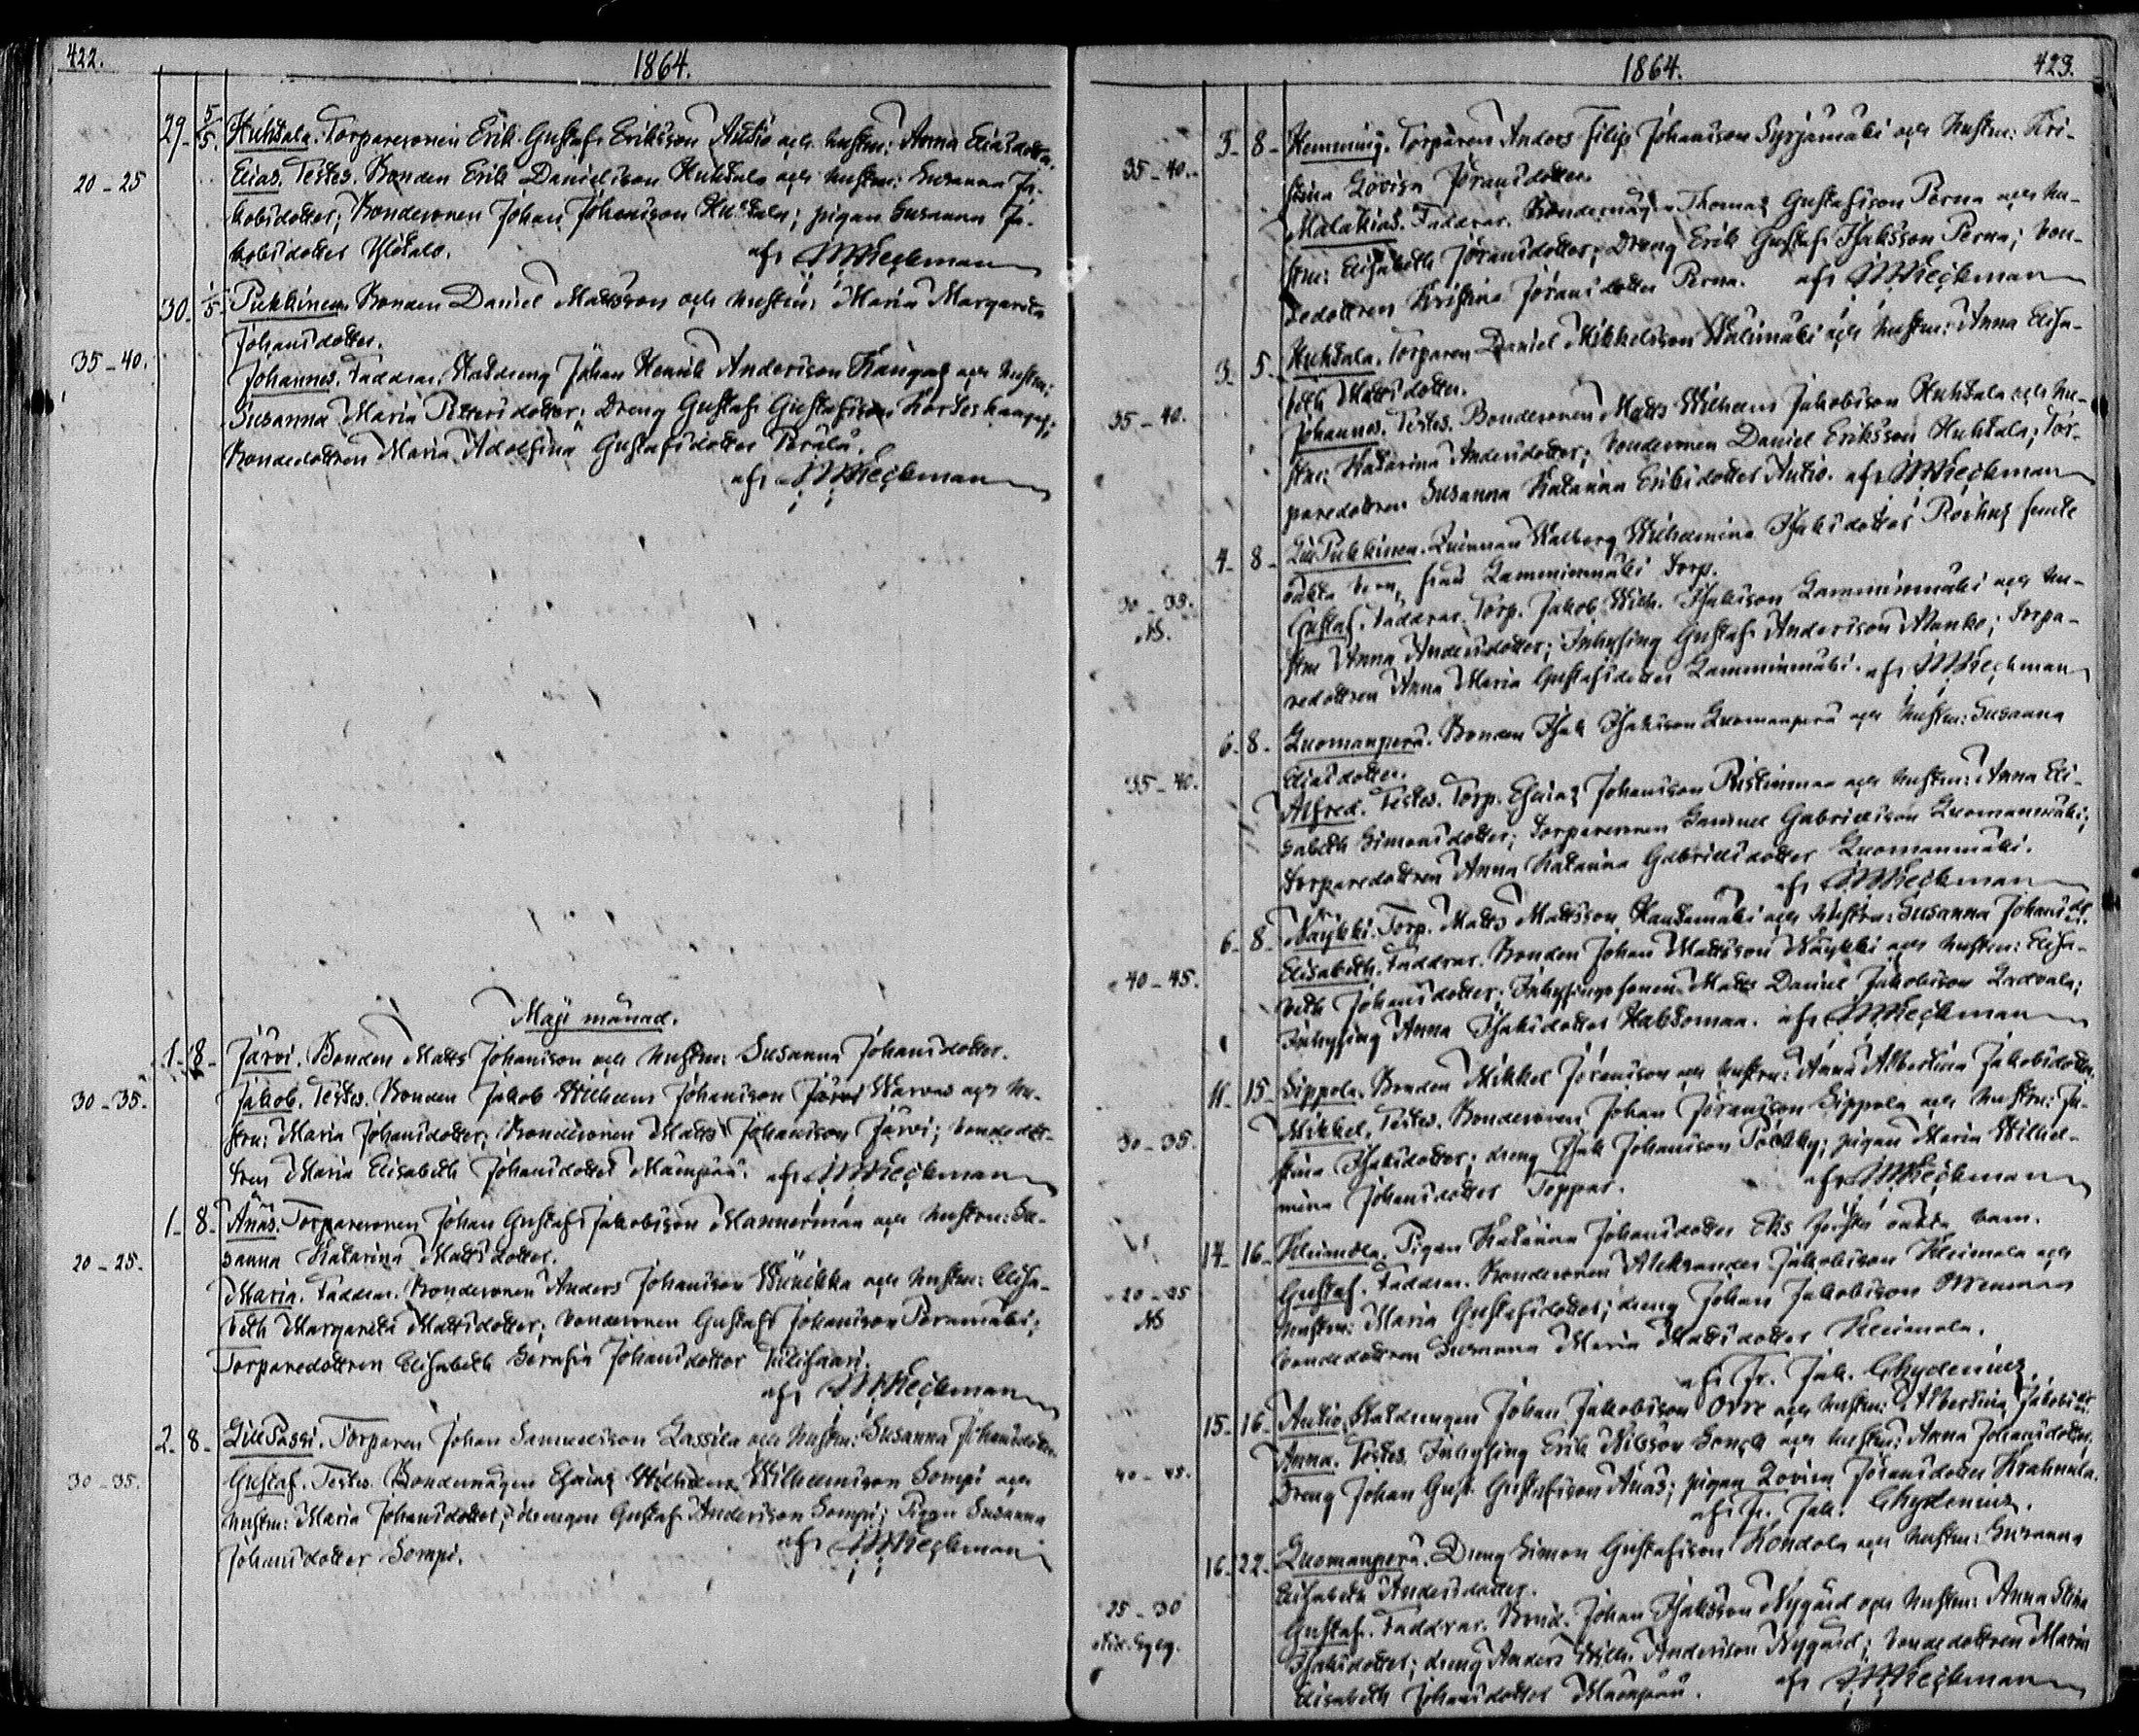 422.
1864.
29. 5/5. Huhtala. Torparesonen Erik Gustaf Eriksson Autio och hustru: Anna Eliasdotter.
20-25 Elias. Testes. Bonden Erik Danielsson Huhtala och hustru: Susanna Ja-
kobsdotter; Bondesonen Johan Johansson Huhtala; pigan Susanna Ja-
kobsdotter Ylitalo. afs
30. 1/5. Pukkinen. Bonden Daniel Mattsson och hustru: Maria Margareta
Johansdotter.
35-40. Johannes. Faddrar. Statdreng Johan Henrik Andersson Kangas och hustru:
Susanna Maria Pettersdotter; Dreng Gustaf Gustafsson
Bondedottren Maria Adolfina Gustafsdotter Perälä.
afs
Maji månad.
1. 8. Järvi. Bonden Matts Johansson och hustru: Susanna Johansdotter.
30-35. Jakob. Testes. Bonden Jakob Wilhelm Johansson Järvi och hu-
stru: Maria Johansdotter; Bondesonen Matts Johansson Järvi; bondedot-
tren Maria Elisabeth Johansdotter Mäenpää. afs
1. 8. Änäs. Torparesonen Johan Gustaf Jakobsson Mannermaa och hustru: Su-
sanna Katarina Mattsdotter.
20-25. Maria. Faddrar. Bondesonen Anders Johansson och hustru: Elisa-
beth Margareta Mattsdotter; bondesonen Gustaf Johansson Peramäki;
Torparedottren Elisabeth Serafia Johansdotter
afs
2. 8. LillPassi. Torparen Johan Samuelsson Lassila och hustru: Susanna Johansdotter.
30-35. Gustaf. Testes. Bondemågen Esaias Wilhelmsson Sompi och
hustru: Maria Johansdotter; drengen Gustaf Andersson Sompi; Pigan Susanna
Johansdotter Sompi. afs
1864.
423.
3. 8. Hemming. Torparen Anders Filip Johansson Syrjämäki och hustru: Kri-
35-40. stina Lovisa Göransdotter.
Malakias. Faddrar. Bondemågen Thomas Gustafsson Perna och hu-
stru: Elisabeth Göransdotter; Dreng Erik Gustaf Isaksson Perna; bon-
dedottren Kristina Göransdotter Perna. afs
3. 5. Huhtala. Torparen Daniel Mikkelsson Wälimäki och hustru: Anna Elisa-
beth Mattsdotter.
35-40. Johannes. Testes. Bondesonen Matts Wilhelm Jakobsson Huhtala och hu-
stru: Katarina Andersdotter; bondesonen Daniel Eriksson Huhtala; Tor-
paredottren Susanna Katarina Eriksdotter Autio. afs
4. 8. LillPukkinen. Quinnan Walborg Wilhelmina Isaksdotter
oäkta barn, från Lamminmäki torp.
Gustaf. Faddrar. Torp. Jakob Wilh. Isaksson Lamminmäki och hu-
stru Anna Andersdotter; Inhysing Gustaf Andersson Manko; torpa-
redottren Anna Maria Gustafsdotter Lamminmäki. afs
6. 8. Luomanperä. Bonden Isak Isaksson Luomanperä och hustru: Susanna
Eliasdotter.
35-40. Alfred. Testes. Torp. Esaias Johansson Ristimaa och hustru: Anna Eli-
sabeth Simonsdotter; torparesonen Samuel Gabrielsson Luomanmäki;
torparedottren Anna Katarina Gabrielsdotter Luomanmäki.
afs
6. 8. Näykki. Torp. Matts Mattsson Hautamäki och hustru: Susanna Johansdr.
40-45. Elisabeth. Faddrar. Bonden Johan Mattsson Näykki och hustru: Elisa-
beth Johansdotter; Inhysingssonen Matts Daniel Jakobsson Ladvala;
Inhysing Anna Isaksdotter Haldomaa. afs
11. 15. Sippola. Bonden Mikkel Göransson och hustru: Anna Albertina Jakobsdotter.
30-35. Mikkel. Testes. Bondesonen Johan Göransson Sippola och hustru: Ju-
stina Isaksdotter; dreng Isak Johansson pigan Maria Wilhel-
mina Johansdotter Toppar. afs
14. 16. Heimola. Pigan Katarina Johansdotter oäkta barn.
20-25 Gustaf. Faddrar. Bondesonen Aleksander Jakobsson Heimola och
hustru: Maria Gustafsdotter; dreng Johan Jakobsson
bondedottren Susanna Maria Mattsdotter Heimola.
afs Fr. Jak. Chydenius.
15. 16. Autio. Statdrengen Johan Jakobsson Orre och hustru: Albertina Jakobsdr.
40-45. Anna. Testes. Inhysing Erik Nilsson och hustru: Anna Johansdotter,
Dreng Johan Gust. Gustafsson Änäs; pigan Lovisa Göransdotter
afs Fr. Jak. Chydenius.
16. 22. Luomanperä. Dreng Simon Gustafsson Kondola och hustru: Susanna
Elisabeth Andersdotter.
25-30 Gustaf. Faddrar. Bond. Johan Isaksson Nygård och hustru: Anna Stina
Isaksdotter; dreng Anders Wilh. Andersson Nygård; bondedottren Maria
Elisabeth Johansdotter Mäenpää. afs